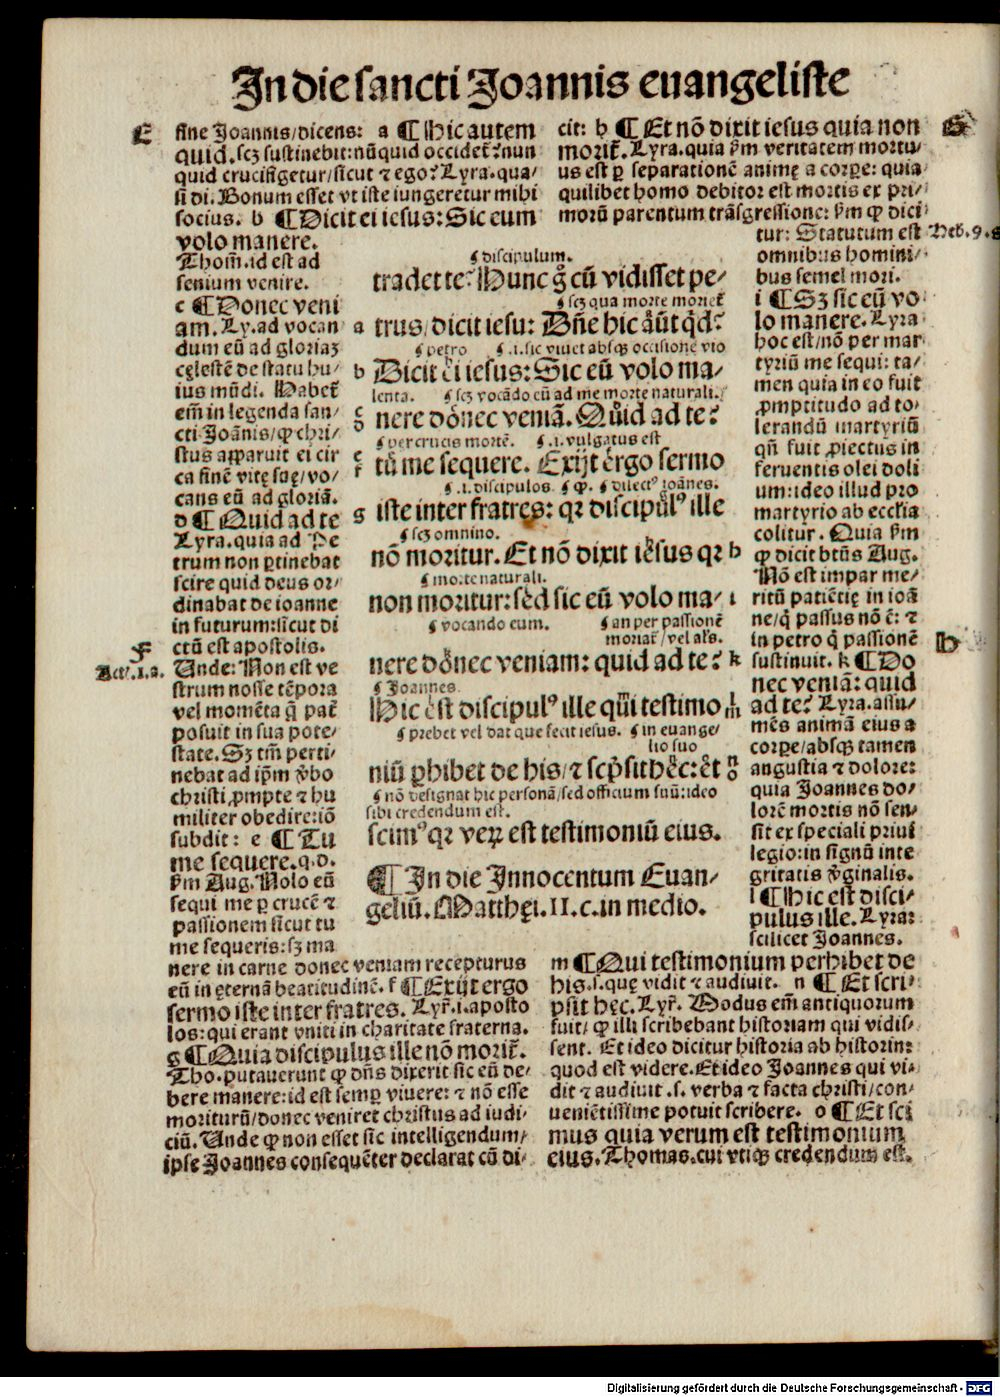 In die sancti Joannis euangeliste
E
fine Joannis/dicens: a ¶ Hic autem
quid.scz sustinebit:nũquid occidet̃?nun
quid crucifigetur/sicut ⁊ ego? Lyra.qua/
si di. Bonum esset vt iste iungeretur mihi
socius. b ¶ Dicit ei iesus: Sic eum
volo manere.
Thom̃.id est ad
senium venire.
c ¶ Donec veni
am. Ly.ad vocan
dum eũ ad gloriaz
cęlestẽ de statu hu/
ius mũdi. Habet̃
em̃ in legenda san/
cti Joãnis/ꝙ chri/
stus apparuit ei cir
ca finẽ vitę suę/vo/
cans eũ ad gloriã.
d ¶ Quid ad te
Lyra.quia ad Pe
trum non ꝑtinebat
scire quid deus or/
dinabat de ioanne
in futurum:sicut di
ctũ est apostolis.
F
Act̃.1.a.
Unde: Non est ve
strum nosse tẽpora
vel momẽta q̃ pat̃
posuit in sua pote/
state. Sz tm̃ perti/
nebat ad ip̃m v̾bo
christi ꝓmpte ⁊ hu
militer obedire:iõ
subdit: e ¶ Tu
me sequere.q.d.
s̾m Aug. Nolo eũ
sequi me ꝑ crucẽ ⁊
passionem sicut tu
me sequeris:sz ma
nere in carne donec veniam recepturus
eũ in ęternã beatitudinẽ. f ¶ Exijt ergo
sermo iste inter fratres. Lyr̃.i.aposto
los:qui erant vniti in charitate fraterna.
g ¶ Quia discipulus ille nõ morit̃.
Tho.putauerunt ꝙ dñs dixerit sic eũ de/
bere manere:id est semꝑ viuere: ⁊ nõ esse
moriturũ/donec veniret christus ad iudi/
ciũ. Unde ꝙ non esset sic intelligendum/
ipse Joannes consequẽter declarat cũ di/
¶ discipulum.
tradet te? Hunc g̃ cũ vidisset pe/
¶ scz qua morte moriet̃
a trus/dicit iesu: Dñe hic aũt qd?
¶ petro ¶ .i.sic viuet absqꝫ occisione vio
b Dicit ei iesus: Sic eũ volo ma/
lenta. ¶ scz vocãdo cũ ad me morte naturali.
c d nere donec veniã. Quid ad te?
¶ per crucis mortẽ. ¶ .i. vulgatus est
e f tu me sequere. Exijt ergo sermo
¶ .i.discipulos ¶ ꝙ. ¶ dilect⁹ ioãnes.
g iste inter fratres: qꝛ discipul⁹ ille
¶ scz omnino.
nõ moritur. Et nõ dixit iesus qꝛ h
¶ morte naturali.
non moritur: sed sic eũ volo ma/ i
¶ vocando eum. ¶ an per passionẽ
moriat̃/vel alr̃s.
nere donec veniam: quid ad te? k
¶ Joannes.
Hic est discipul⁹ ille qui testimo l m
¶ prebet vel dat que fecit iesus. ¶ in euange/
lio suo
niũ ꝑhibet de his/⁊ scp̃sit hęc: et n o
¶ nõ designat hic personã/sed officium suũ:ideo
sibi credendum est.
scim⁹ qꝛ veꝝ est testimoniũ eius.
¶ In die Innocentum Euan/
geliũ. Matthęi. II. c. in medio.
cit: h ¶ Et nõ dixit iesus quia non
G
morit̃. Lyra.quia s̾m veritatem mortu/
us est ꝑ separationẽ animę a corꝑe: quia
quilibet homo debitor est mortis ex pri/
morũ parentum trãsgressione: s̾m ꝙ dici
tur: Statutum est
Heb.9.g
omnibus homini/
bus semel mori.
i ¶ Sz sic eũ vo
lo manere. Lyra
hoc est/nõ per mar
tyriũ me sequi: ta/
men quia in eo fuit
ꝓmptitudo ad to/
lerandũ martyriũ
qñ fuit ꝓiectus in
feruentis olei doli
um:ideo illud pro
martyrio ab ecclia
colitur. Quia s̾m
ꝙ dicit btũs Aug.
Nõ est impar me/
ritũ patiẽtię in ioã
ne/q̃ passus nõ ẽ: ⁊
in petro q̃ passionẽ
H
sustinuit. k ¶ Do
nec veniã: quid
ad te? Lyra.assu/
mẽs animã eius a
corꝑe/absqꝫ tamen
angustia ⁊ dolore:
quia Joannes do/
lorẽ mortis nõ sen/
sit ex speciali priui
legio:in signũ inte
gritatis v̾ginalis.
l ¶ Hic est disci/
pulus ille. Lyra:
scilicet Joannes.
m ¶ Qui testimonium perhibet de
his.s.quę vidit ⁊ audiuit. n ¶ Et scri/
psit hęc. Lyr̃. Modus em̃ antiquorum
fuit/ꝙ illi scribebant historiam qui vidis/
sent. Et ideo dicitur historia ab historin:
quod est videre. Et ideo Joannes qui vi/
dit ⁊ audiuit .s. verba ⁊ facta christi/con/
ueniẽtissime potuit scribere. o ¶ Et sci
mus quia verum est testimonium
eius. Thomas.cui vtiqꝫ credendum est.
Digitalisierung gefördert durch die Deutsche Forschungsgemeinschaft - DFG